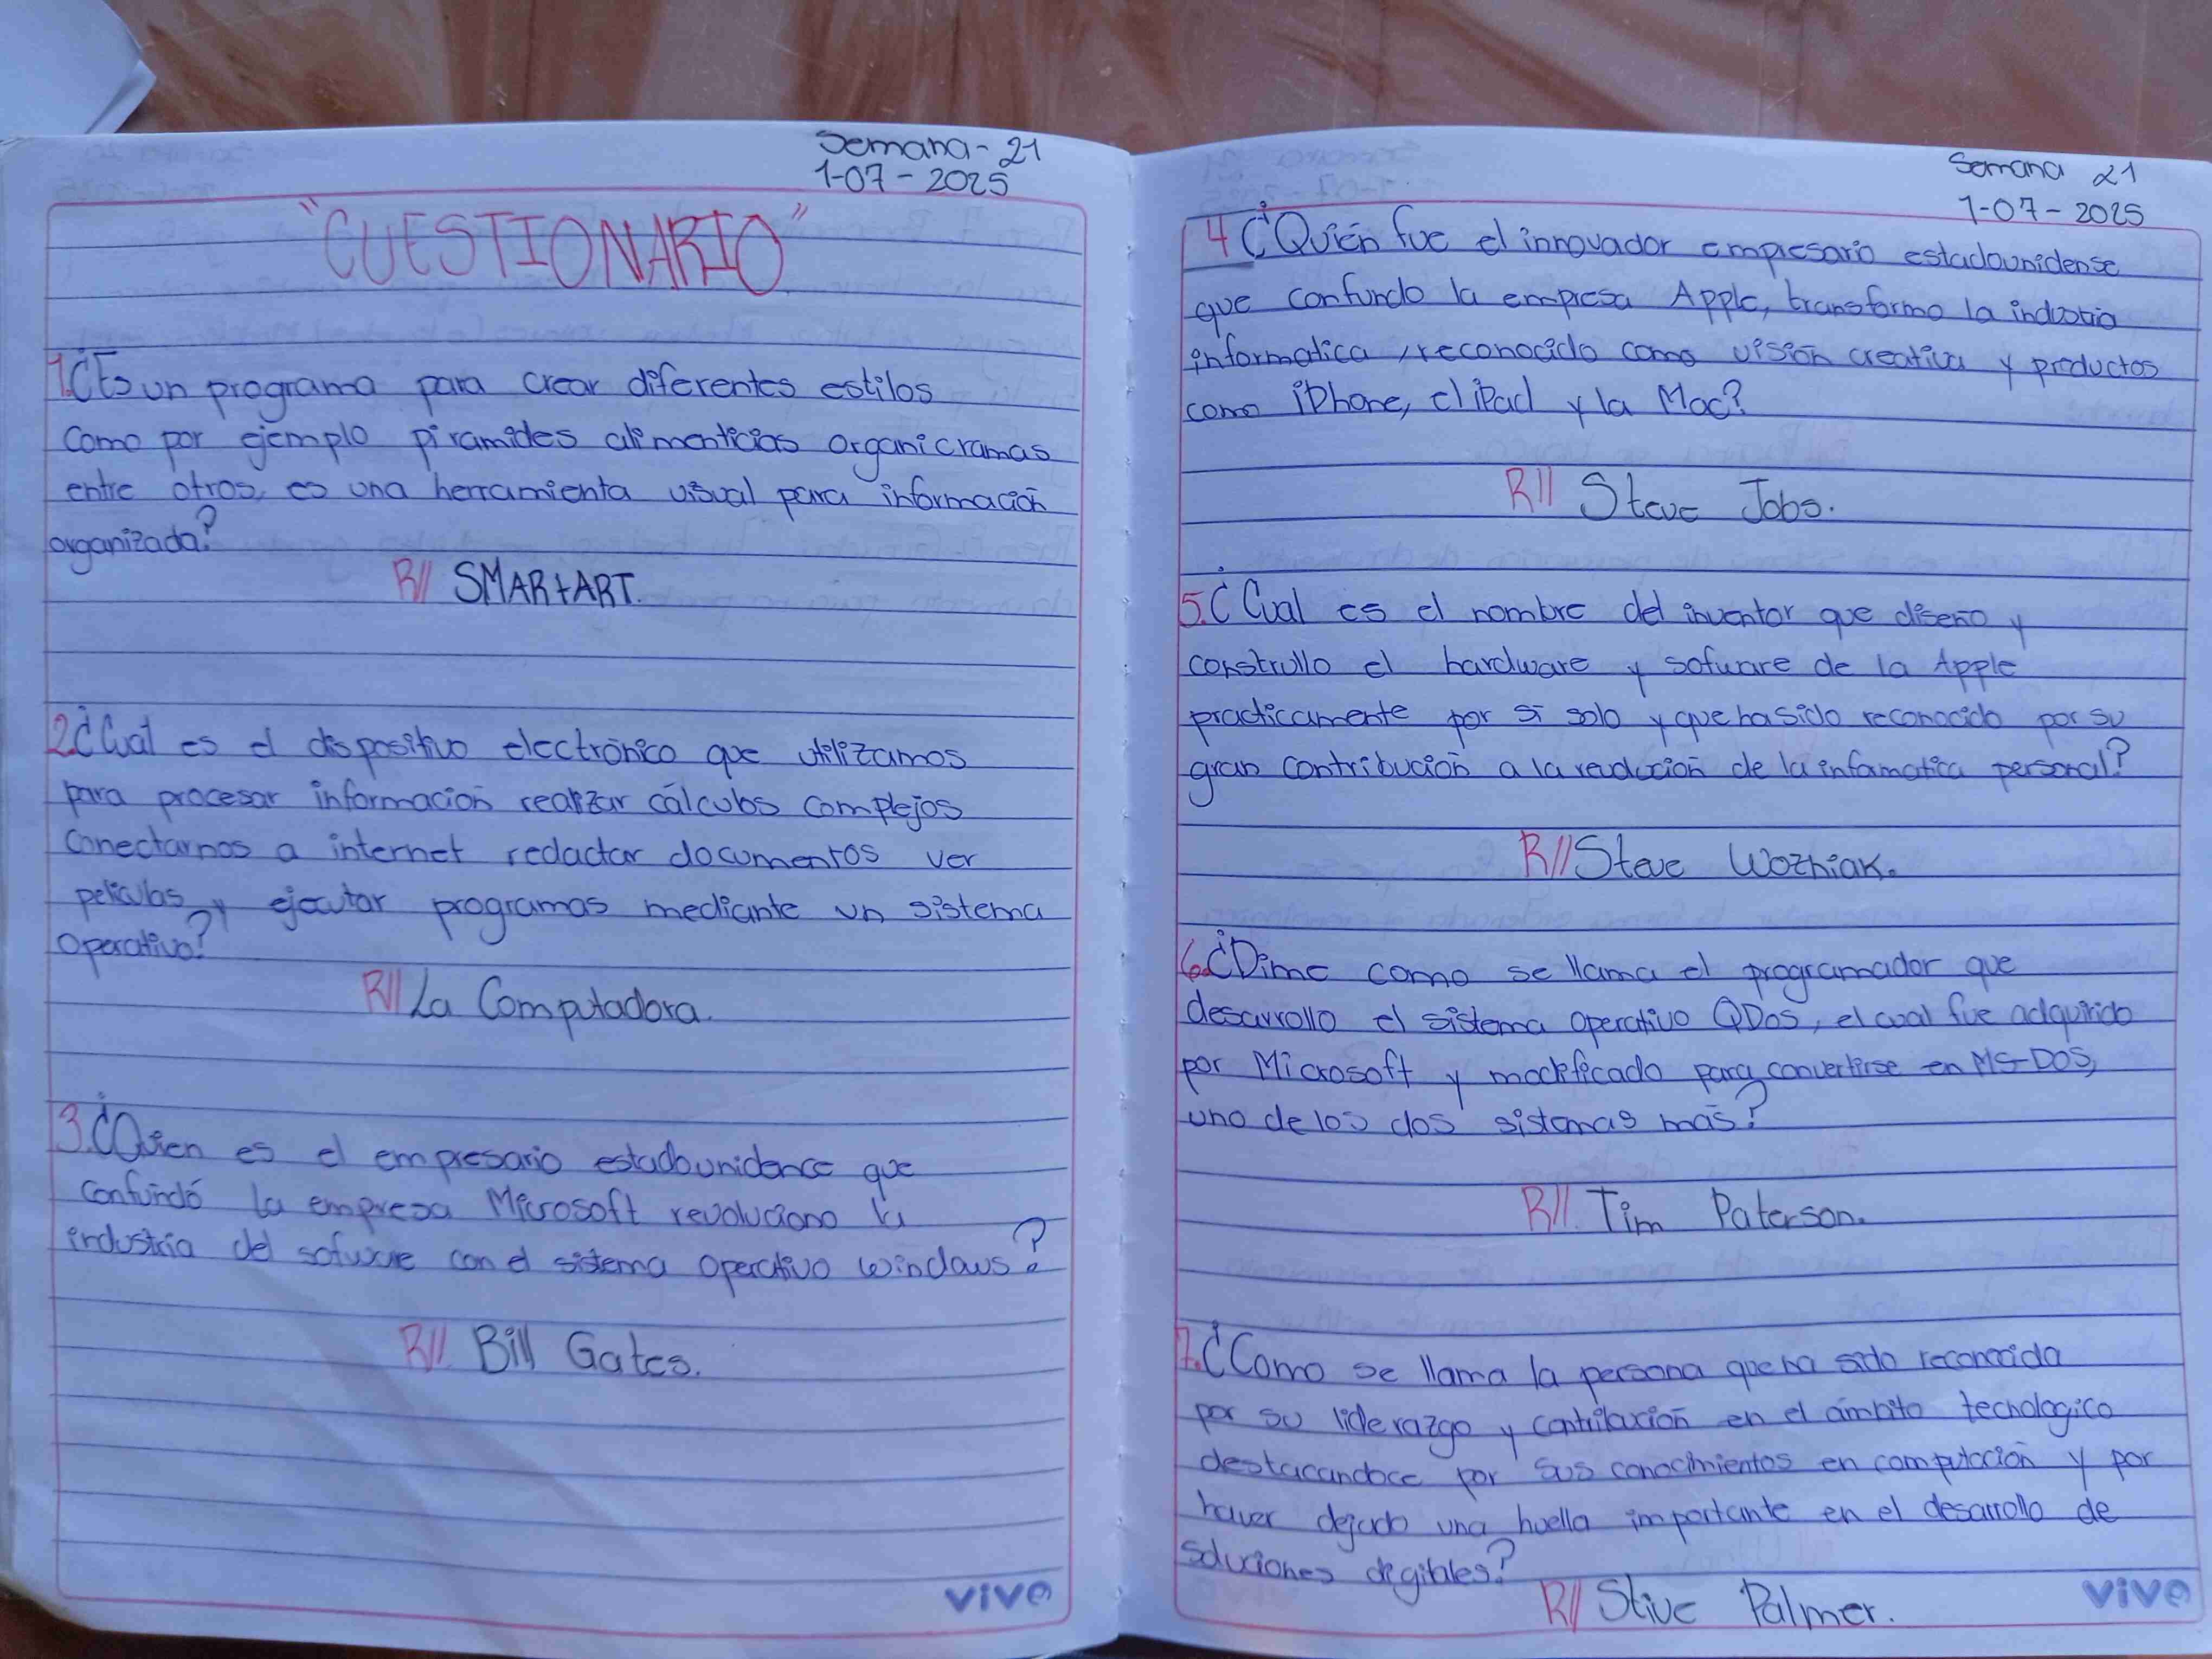 Semana - 21
1-07-2025
"CUESTIONARIO"
1.¿Es un programa para crear diferentes estilos
como por ejemplo piramides alimenticias organicramas
entre otros, es una herramienta visual para información
organizada?
R// SMARtART.
2.¿Cuál es el dispositivo electrónico que utilizamos
para procesar información realizar cálculos complejos
conectarnos a internet redactar documentos ver
películas y ejecutar programas mediante un sistema
operativo?
R// La Computadora.
3.¿Quien es el empresario estadounidence que
confundó la empresa Microsoft revoluciono la
industria del sofware con el sistema operativo windows?
R//. Bill Gates.
vivo
Semana 21
1-07-2025
4 ¿Quién fue el innovador empresario estadounidense
que confundo la empresa Apple, transformo la industria
informatica, reconocido como visión creativa y productos
como iPhone, el iPad y la Mac?
R// Steve Jobs.
5.¿Cual es el nombre del inventor que diseño y
construllo el hardware y sofware de la Apple
practicamente por sí solo y que ha sido reconocido por su
gran contribución a la revolución de la informatica personal?
R// Steve Wozniak.
6.¿Dime como se llama el programador que
desarrollo el sistema operativo QDOS, el cual fue adquirido
por Microsoft y modificado para convertirse en MS-DOS,
uno de los dos sistemas más?
R//. Tim Paterson.
7.¿Como se llama la persona que ha sido reconocida
por su liderazgo y contribución en el ámbito tecnologico
destacandoce por sus conocimientos en computación y por
haver dejado una huella importante en el desarrollo de
soluciones digibles?
R// Stive Palmer.
vivo